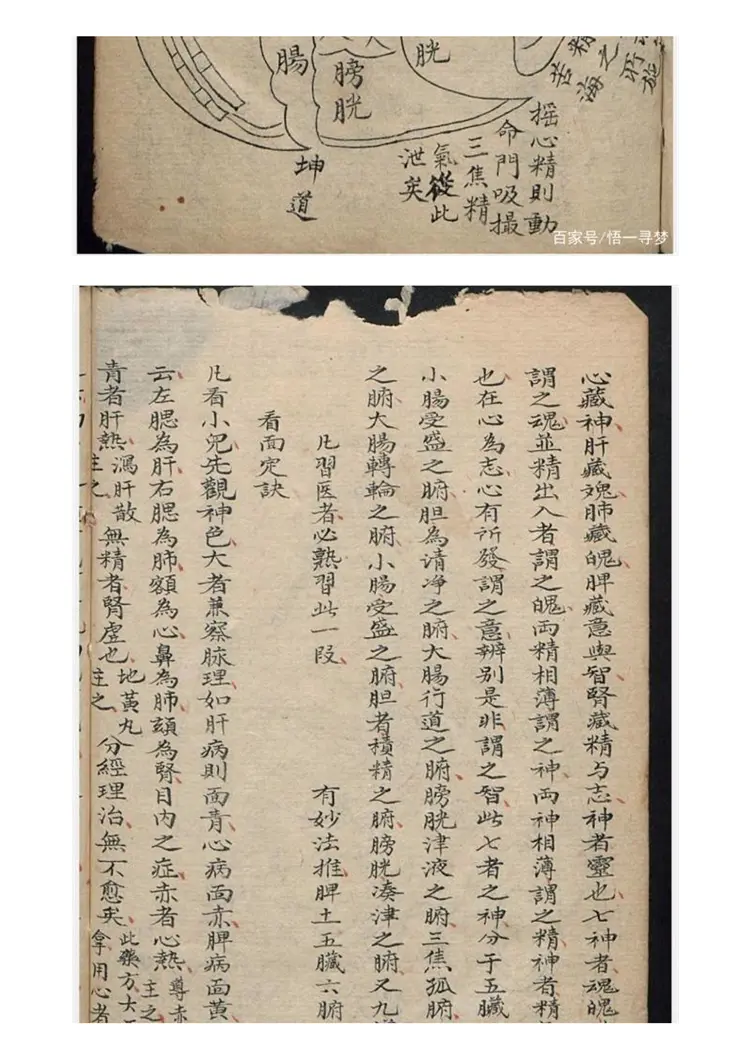 腸
膀胱
胱
精之將施
苦海
搖心精則動
命門吸撮
三焦精
氣從此
泄矣
坤道
百家号/悟一寻梦
心藏神肝藏魂肺藏魄脾藏意與智腎藏精与志神者靈也七神者魂魄
謂之魂並精出入者謂之魄两精相薄謂之神两神相薄謂之精神者精
也在心為志心有所發謂之意辨别是非謂之智此七者之神分于五臓
小腸受盛之腑胆為清净之腑大腸行道之腑膀胱津液之腑三焦孤腑
之腑大腸轉輪之腑小腸受盛之腑胆者積精之腑膀胱凑津之腑又九
凡習医者必熟習此一段 有妙法推脾土五臟六腑
看面定訣
凡看小兒先觀神色大者兼察脉理如肝病則面青心病面赤脾病面黄
云左腮為肝右腮為肺額為心鼻為肺頦為腎目内之症赤者心熱導赤主之
青者肝熱瀉肝散主之無精者腎虚也地黃丸主之分經理治無不愈矣此藥方大拿用心者